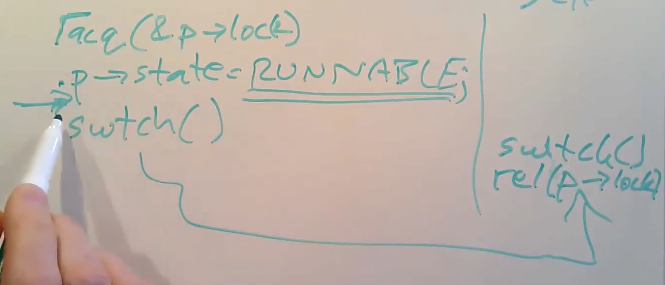 acq(&p→lock)
p→state=RUNNABLE;
swtch()
swtch()
rel(p→lock)